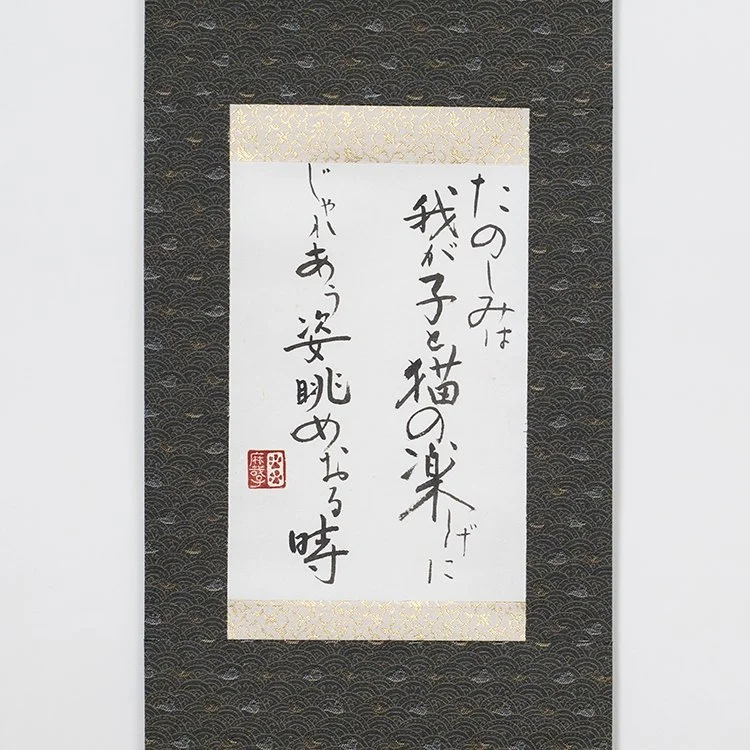 たのしみは
我が子と猫の楽しげに
じゃれあう姿眺めおる時